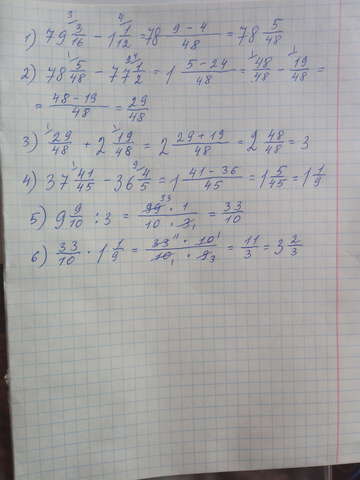 1) 79 3/16 - 1 1/12 = 78 (9 - 4)/48 = 78 5/48
2) 78 5/48 - 77 1/2 = 1 (5 - 24)/48 = 48/48 - 19/48 =
= (48 - 19)/48 = 29/48
3) 29/48 + 2 19/48 = 2 (29 + 19)/48 = 2 48/48 = 3
4) 37 41/45 - 36 4/5 = 1 (41 - 36)/45 = 1 5/45 = 1 1/9
5) 9 9/10 : 3 = (99 · 1)/(10 · 3) = 33/10
6) 33/10 · 1 1/9 = (33 · 10)/(10 · 9) = 11/3 = 3 2/3